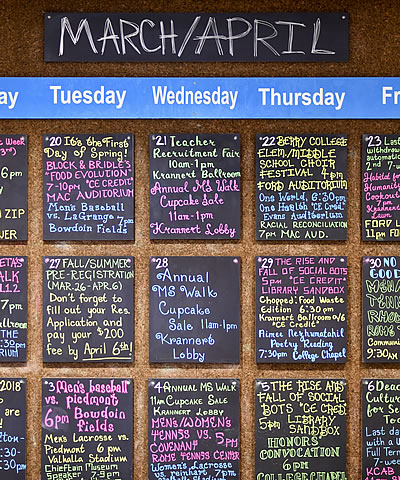 MARCH/APRIL
ay Tuesday Wednesday Thursday Fr
*20 It's the First
Day of Spring!
BLOCK & BRIDLE'S
"FOOD EVOLUTION"
7-10pm "CE CREDIT"
MAC AUDITORIUM
Men's Baseball
vs. LaGrange 7pm
Bowdoin Fields
*21 Teacher
Recruitment Fair
10am-1pm
Krannert Ballroom
Annual MS Walk
Cupcake Sale
11am-1pm
Krannert Lobby
*22 BERRY COLLEGE
ELEM/MIDDLE
SCHOOL CHOIR
FESTIVAL 4pm
FORD AUDITORIUM
One World, 6:30pm
One Health "CE Credit"
Evans Auditorium
RACIAL RECONCILIATION
7pm MAC AUD.
*23 Last
withdraw
automatic
2nd 7
Humanity
Cookout
Lawn
FORD
11pm
Week
6pm
m ZIP
WER
*27 FALL/SUMMER
PRE-REGISTRATION
(MAR.26-APR.6)
Don't forget to
fill out your Res.
Application and
pay your $200
fee by April 6th!
*28
Annual
MS Walk
Cupcake
Sale 11am-1pm
Krannert
Lobby
*29 THE RISE AND
FALL OF SOCIAL BOTS
5pm "CE CREDIT"
LIBRARY SANDBOX
Chopped: Food Waste
Edition 6:30pm
Krannert Ballroom
"CE Credit"
Aimee Nezhukumatathil
Poetry Reading
7:30pm College Chapel
*30 NO
GOOD
MEN/
TENN
RHO
ROM
Commun
9:30AM
ETA'S
ALK
112
7pm
llroom
THE
:30pm
RIUM
*3 Men's baseball
vs. piedmont
6pm Bowdoin
fields
Men's Lacrosse vs.
Piedmont 6 pm
Valhalla Stadium
Chieftain Museum
Speaker
*4 ANNUAL MS WALK
11am Cupcake SALE
KRANNERT LOBBY
MEN'S/WOMEN'S
TENNIS VS. 5pm
COVENANT
ROME TENNIS CENTER
Women's Lacrosse
vs. Huntingdon 7pm
*5 THE RISE AND
FALL OF SOCIAL
BOTS "CE CREDIT
5pm LIBRARY
SANDBOX
HONORS'
CONVOCATION
6 pm
COLLEGE CHAPEL
*6 Dead
Cultur
for Se
Tec
Last da
with a
Full Term
7 we
KCAB
2018